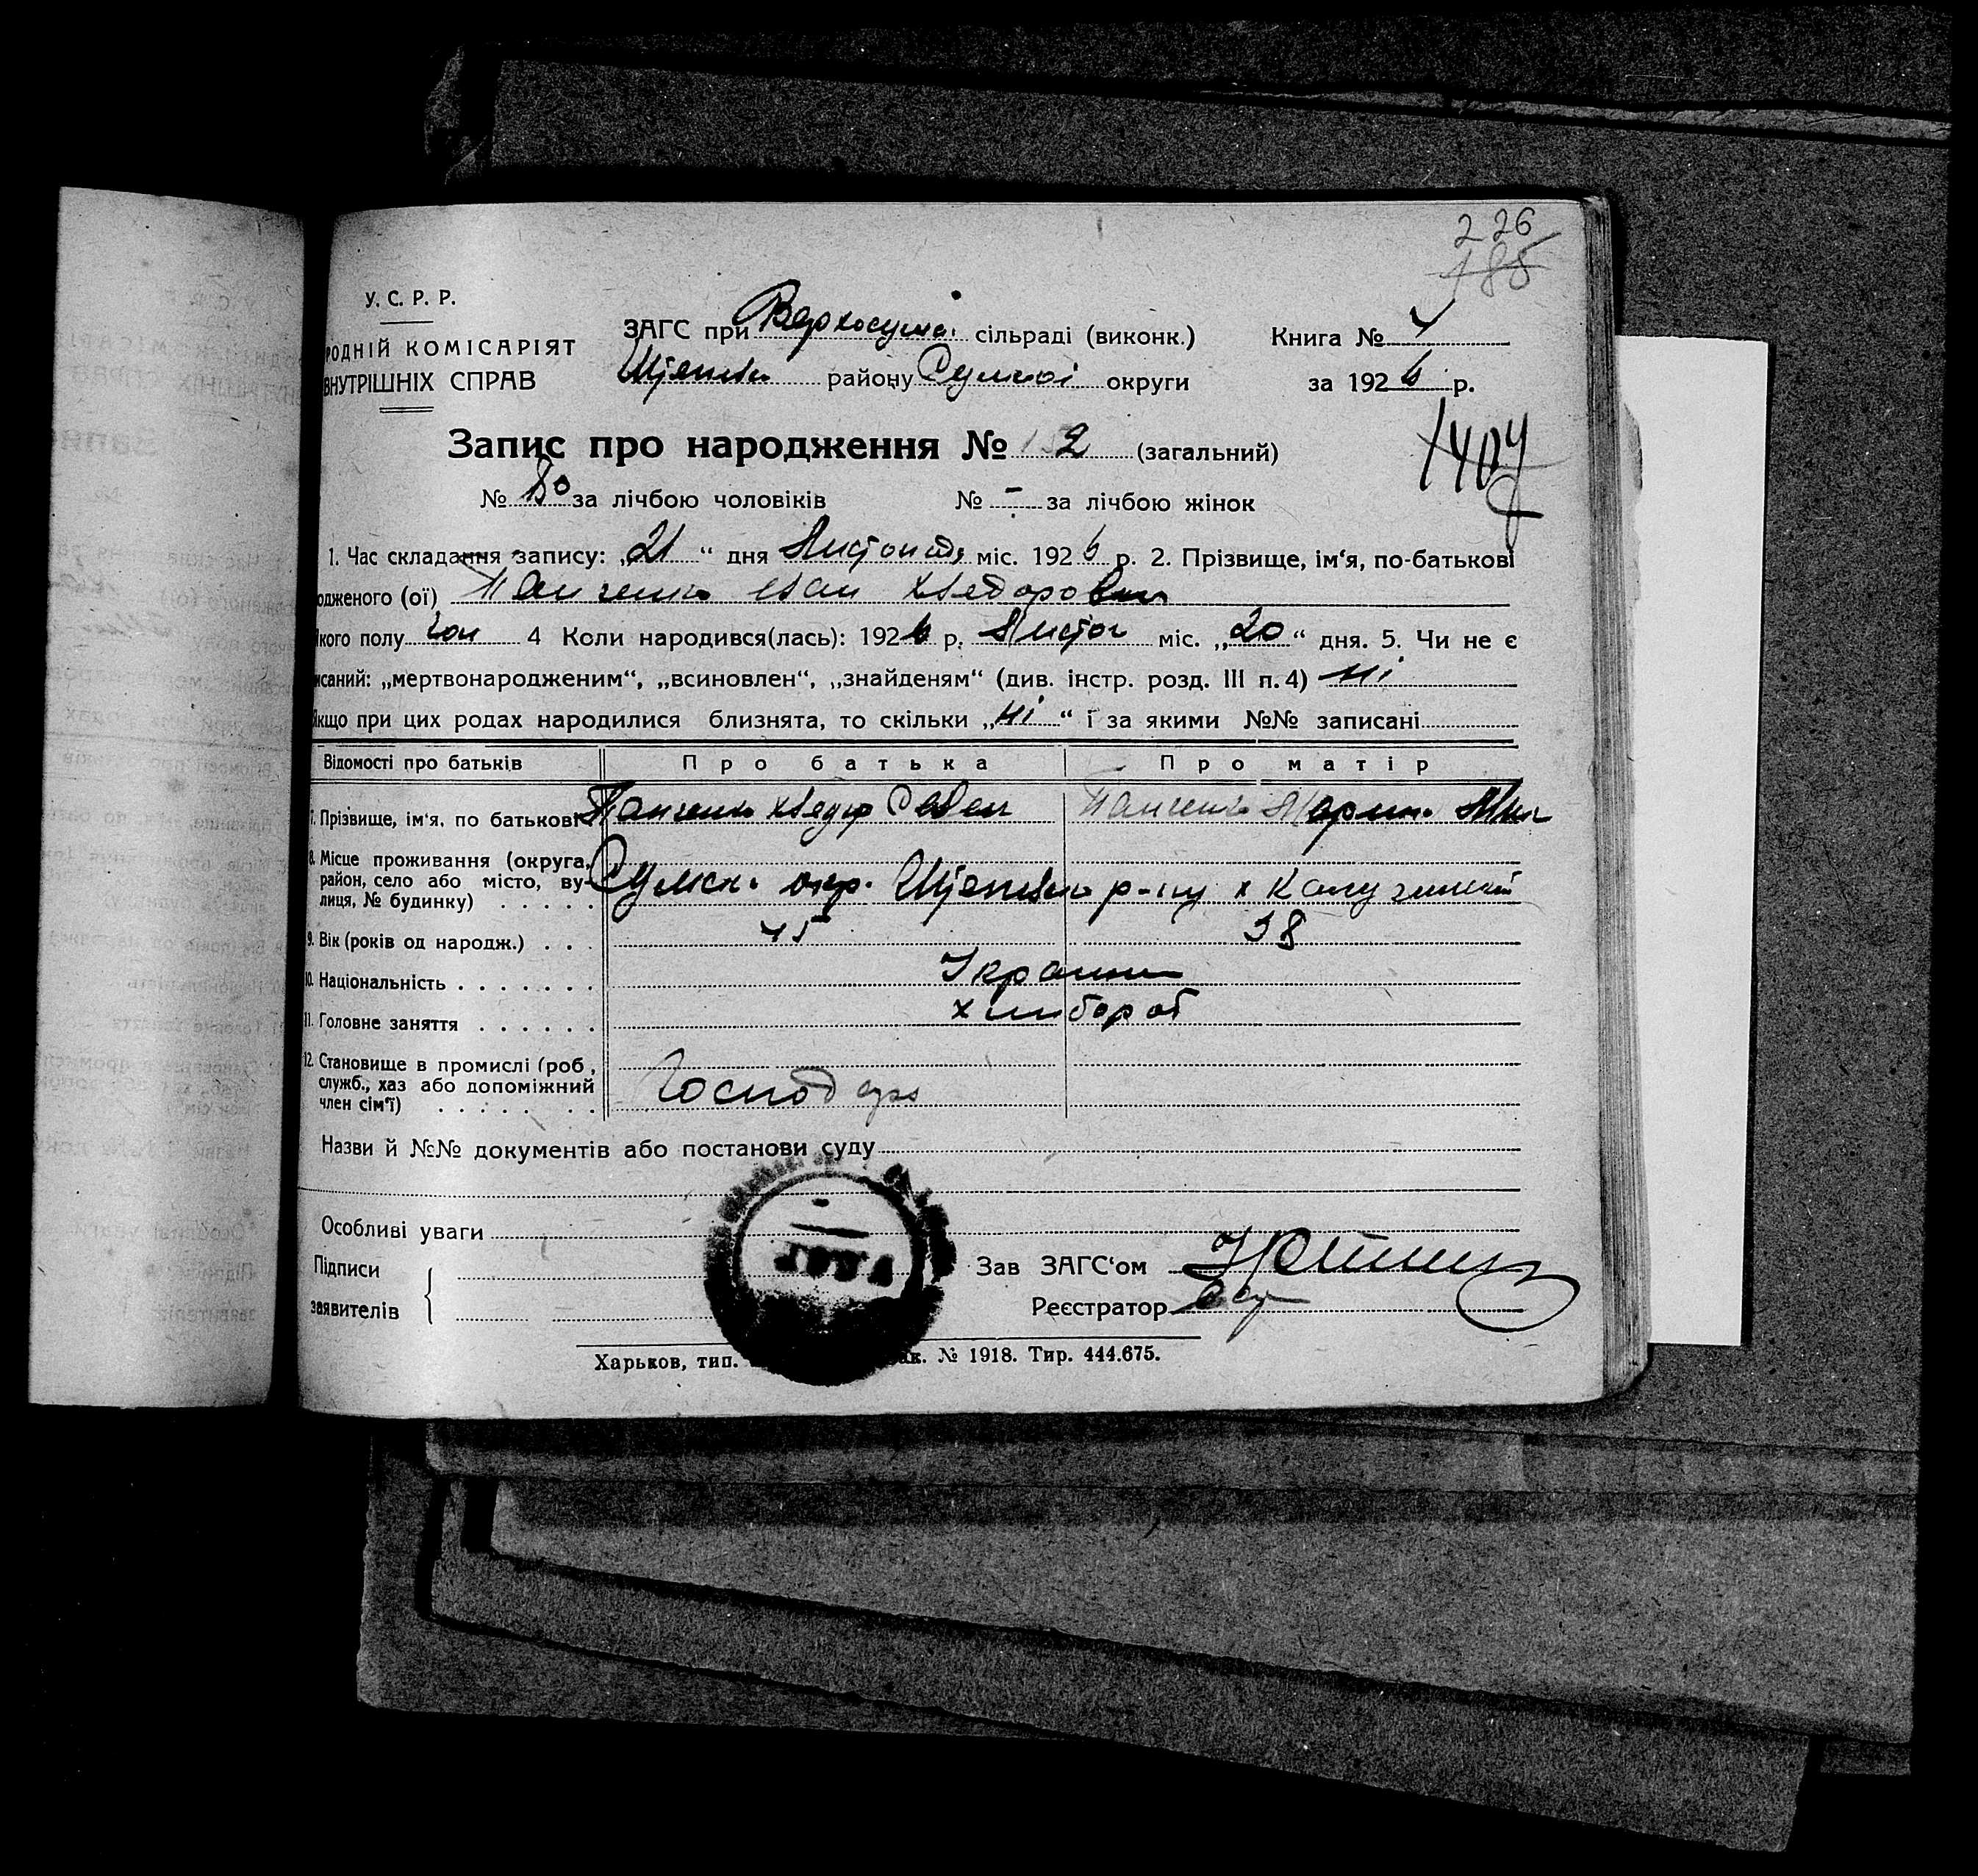 226
185
У. С. Р. Р.
РОДНІЙ КОМІСАРІЯТ
ВНУТРІШНІХ СПРАВ
ЗАГС при Верхосулів. сільраді (виконк.)
району Сумської округи
Книга № 4
за 1926 р.
Запис про народження № 152 (загальний)
№ 80 за лічбою чоловіків № - за лічбою жінок
1. Час складання запису: „21“ дня Листопада міс. 1926 р. 2. Прізвище, ім‘я, по-батькові
одженого (ої) Панченко Іван Хведорович
якого полу чол 4 Коли народився(лась): 1926 р. Листоп міс. „20“ дня. 5. Чи не є
исаний: „мертвонародженим“, „всиновлен“, „знайденям“ (див. інстр. розд. III п. 4) ні
Якщо при цих родах народилися близнята, то скільки „ні“ і за якими №№ записані
Відомості про батьків Про батька Про матір
7. Прізвище, ім‘я, по батькові Панченко Хведір Савел Панченко Марина
8. Місце проживання (округа, район, село або місто, вулиця, № будинку) Сумск. окр. р-ну х
9. Вік (років од народж.) 45 38
10. Національність Україн
11. Головне заняття хлібороб
12. Становище в промислі (роб., служб., хаз або допоміжний член сім‘ї) Господар
Назви й №№ документів або постанови суду
Особливі уваги
Підписи
заявителів
Зав ЗАГС‘ом
Реєстратор
Харьков, тип. ак. № 1918. Тир. 444.675.